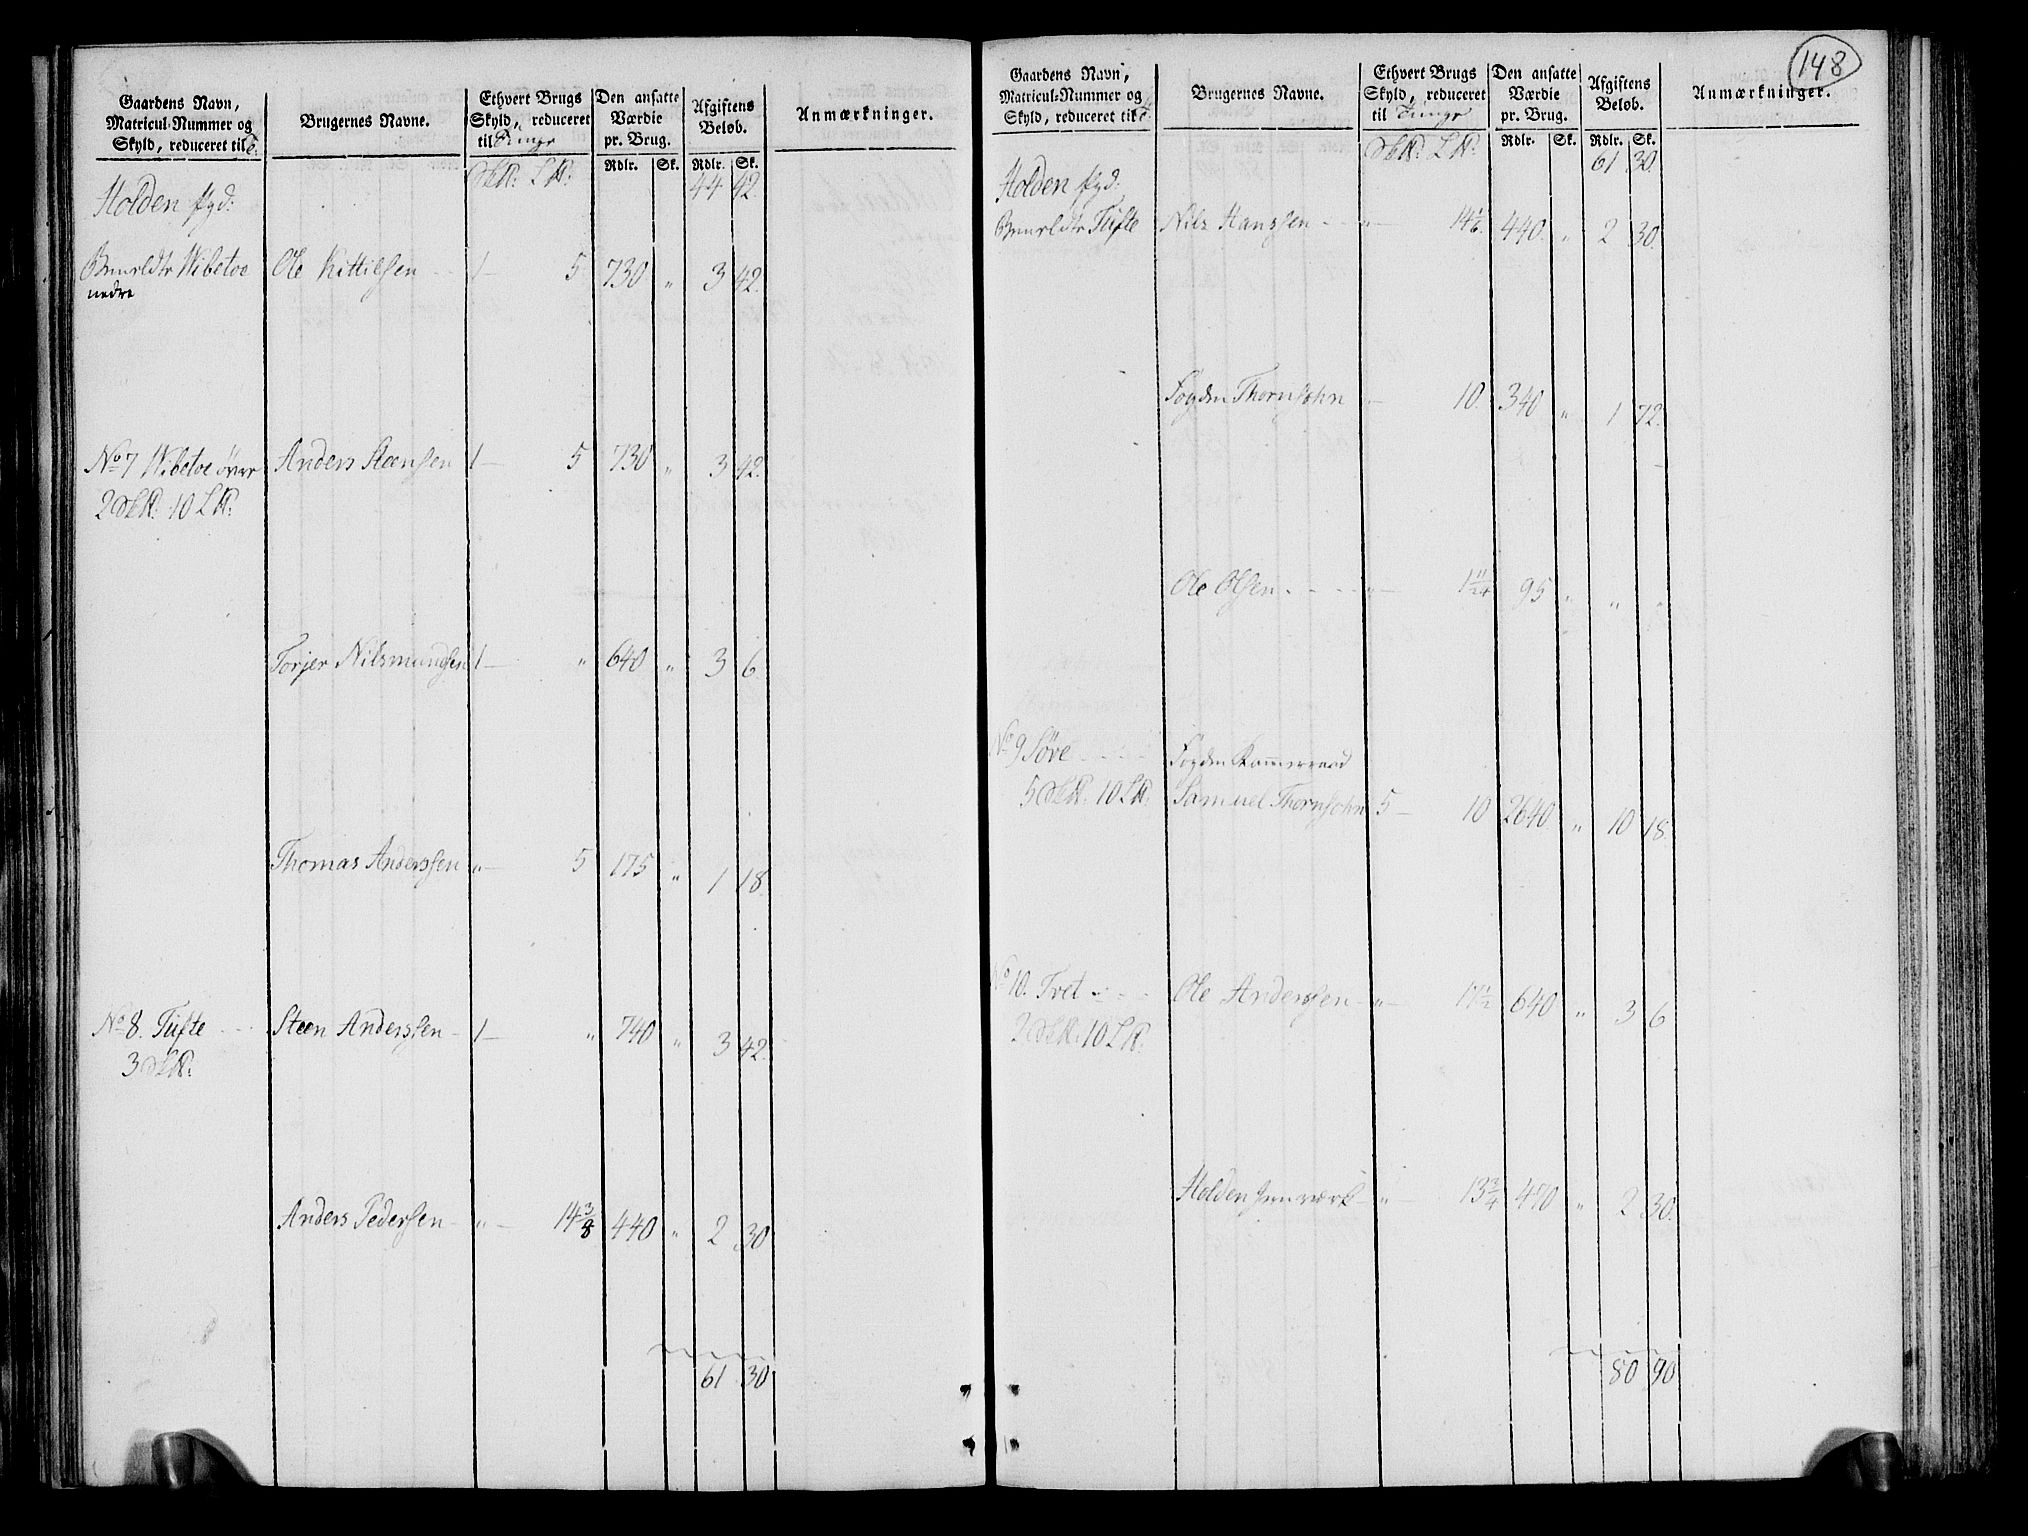 Gaardens Navn, Matricul-Nummer og Skyld, reduceret til
Brugernes Navne.
Ethvert Brugs Skyld, reduceret til Tunge
Den ansatte Værdie pr. Brug.
Afgiftens Beløb.
Anmærkninger.
Rdlr. Sk. Rdlr. Sk.
Holden 44 42
Wibetoe Ole Kittilsen 1 — 5 730 " 3 42.
nedre
No 7 Wibetoe övre Anders Steensen 1 — 5 730 " 3 42.
2 10
Torjer Nilsmundsen 1 — " 640 " 3 6
Thomas Anderssen " — 5 175 " 1 18.
No 8. Tufte Steen Anderssen - 1 — " 740 " 3 42.
3
Anders Pedersen - " — 14 3/8 440 " 2 30
61 30
148
Gaardens Navn, Matricul-Nummer og Skyld, reduceret til
Brugernes Navne.
Ethvert Brugs Skyld, reduceret til Tunge
Den ansatte Værdie pr. Brug.
Afgiftens Beløb.
Anmærkninger.
Rdlr. Sk. Rdlr. Sk.
Holden 61 30.
Tufte Nils Hanssen - - " — 14 1/6 440. " 2 30
Fogden Thornsohn " — 10. 340 " 1 72.
Ole Olsen - - - - " — 1 11/24 95 " " "
No 9 Söve - - - - Fogden Kammerraad
5 10 Samuel Thornsohn 5 — 10 2640 " 10 18.
No 10. Tvet - - - Ole Anderssen - " — 17 1/2 640 " 3 6
2 10
Holden Jernværk - " — 13 3/4 470 " 2 30.
80 90